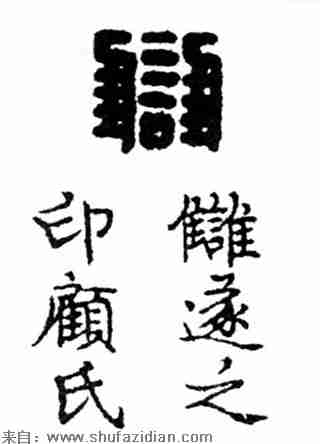 讎
讎遂之
印顧氏
来自：www.shufazidian.com